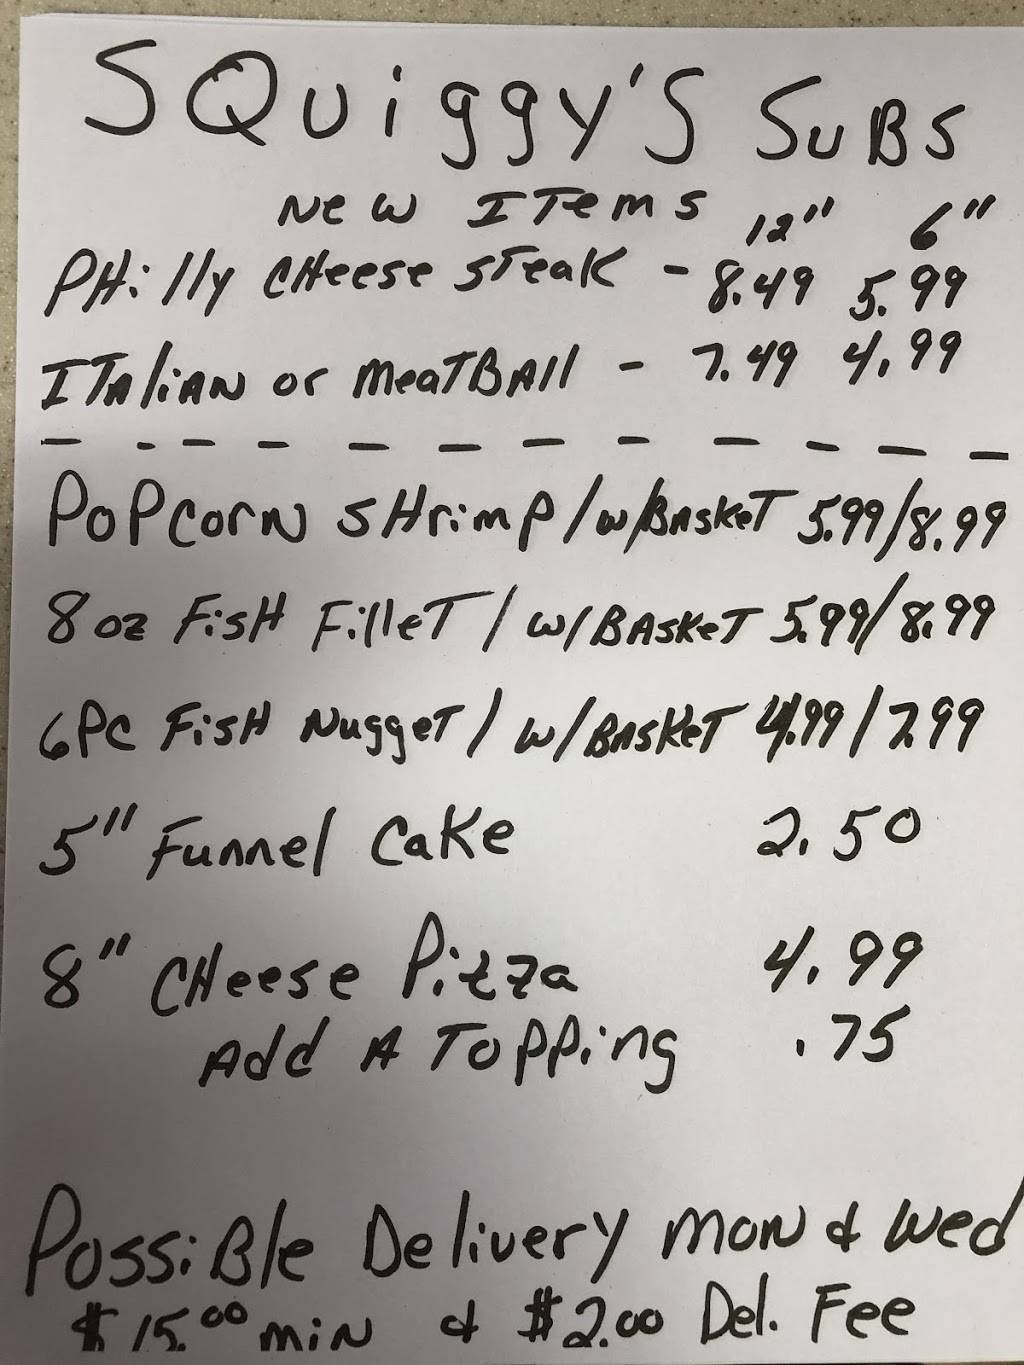 SQuiggy's SuBS
New Items 12" 6"
PHilly CHeese steak - 8.49 5.99
ITAliAN or MeaTBAll - 7.49 4.99
PoPcorN sHrimp / w/BAskeT 5.99/8.99
8 oz FisH FilleT / w/BAskeT 5.99/8.99
6Pc FisH NuggeT / w/BAskeT 4.99/7.99
5" Funnel CaKe 2.50
8" CHeese Pizza 4.99
Add A Topping .75
PossiBle Delivery MoN & Wed
$15.00 miN & $2.00 Del. Fee